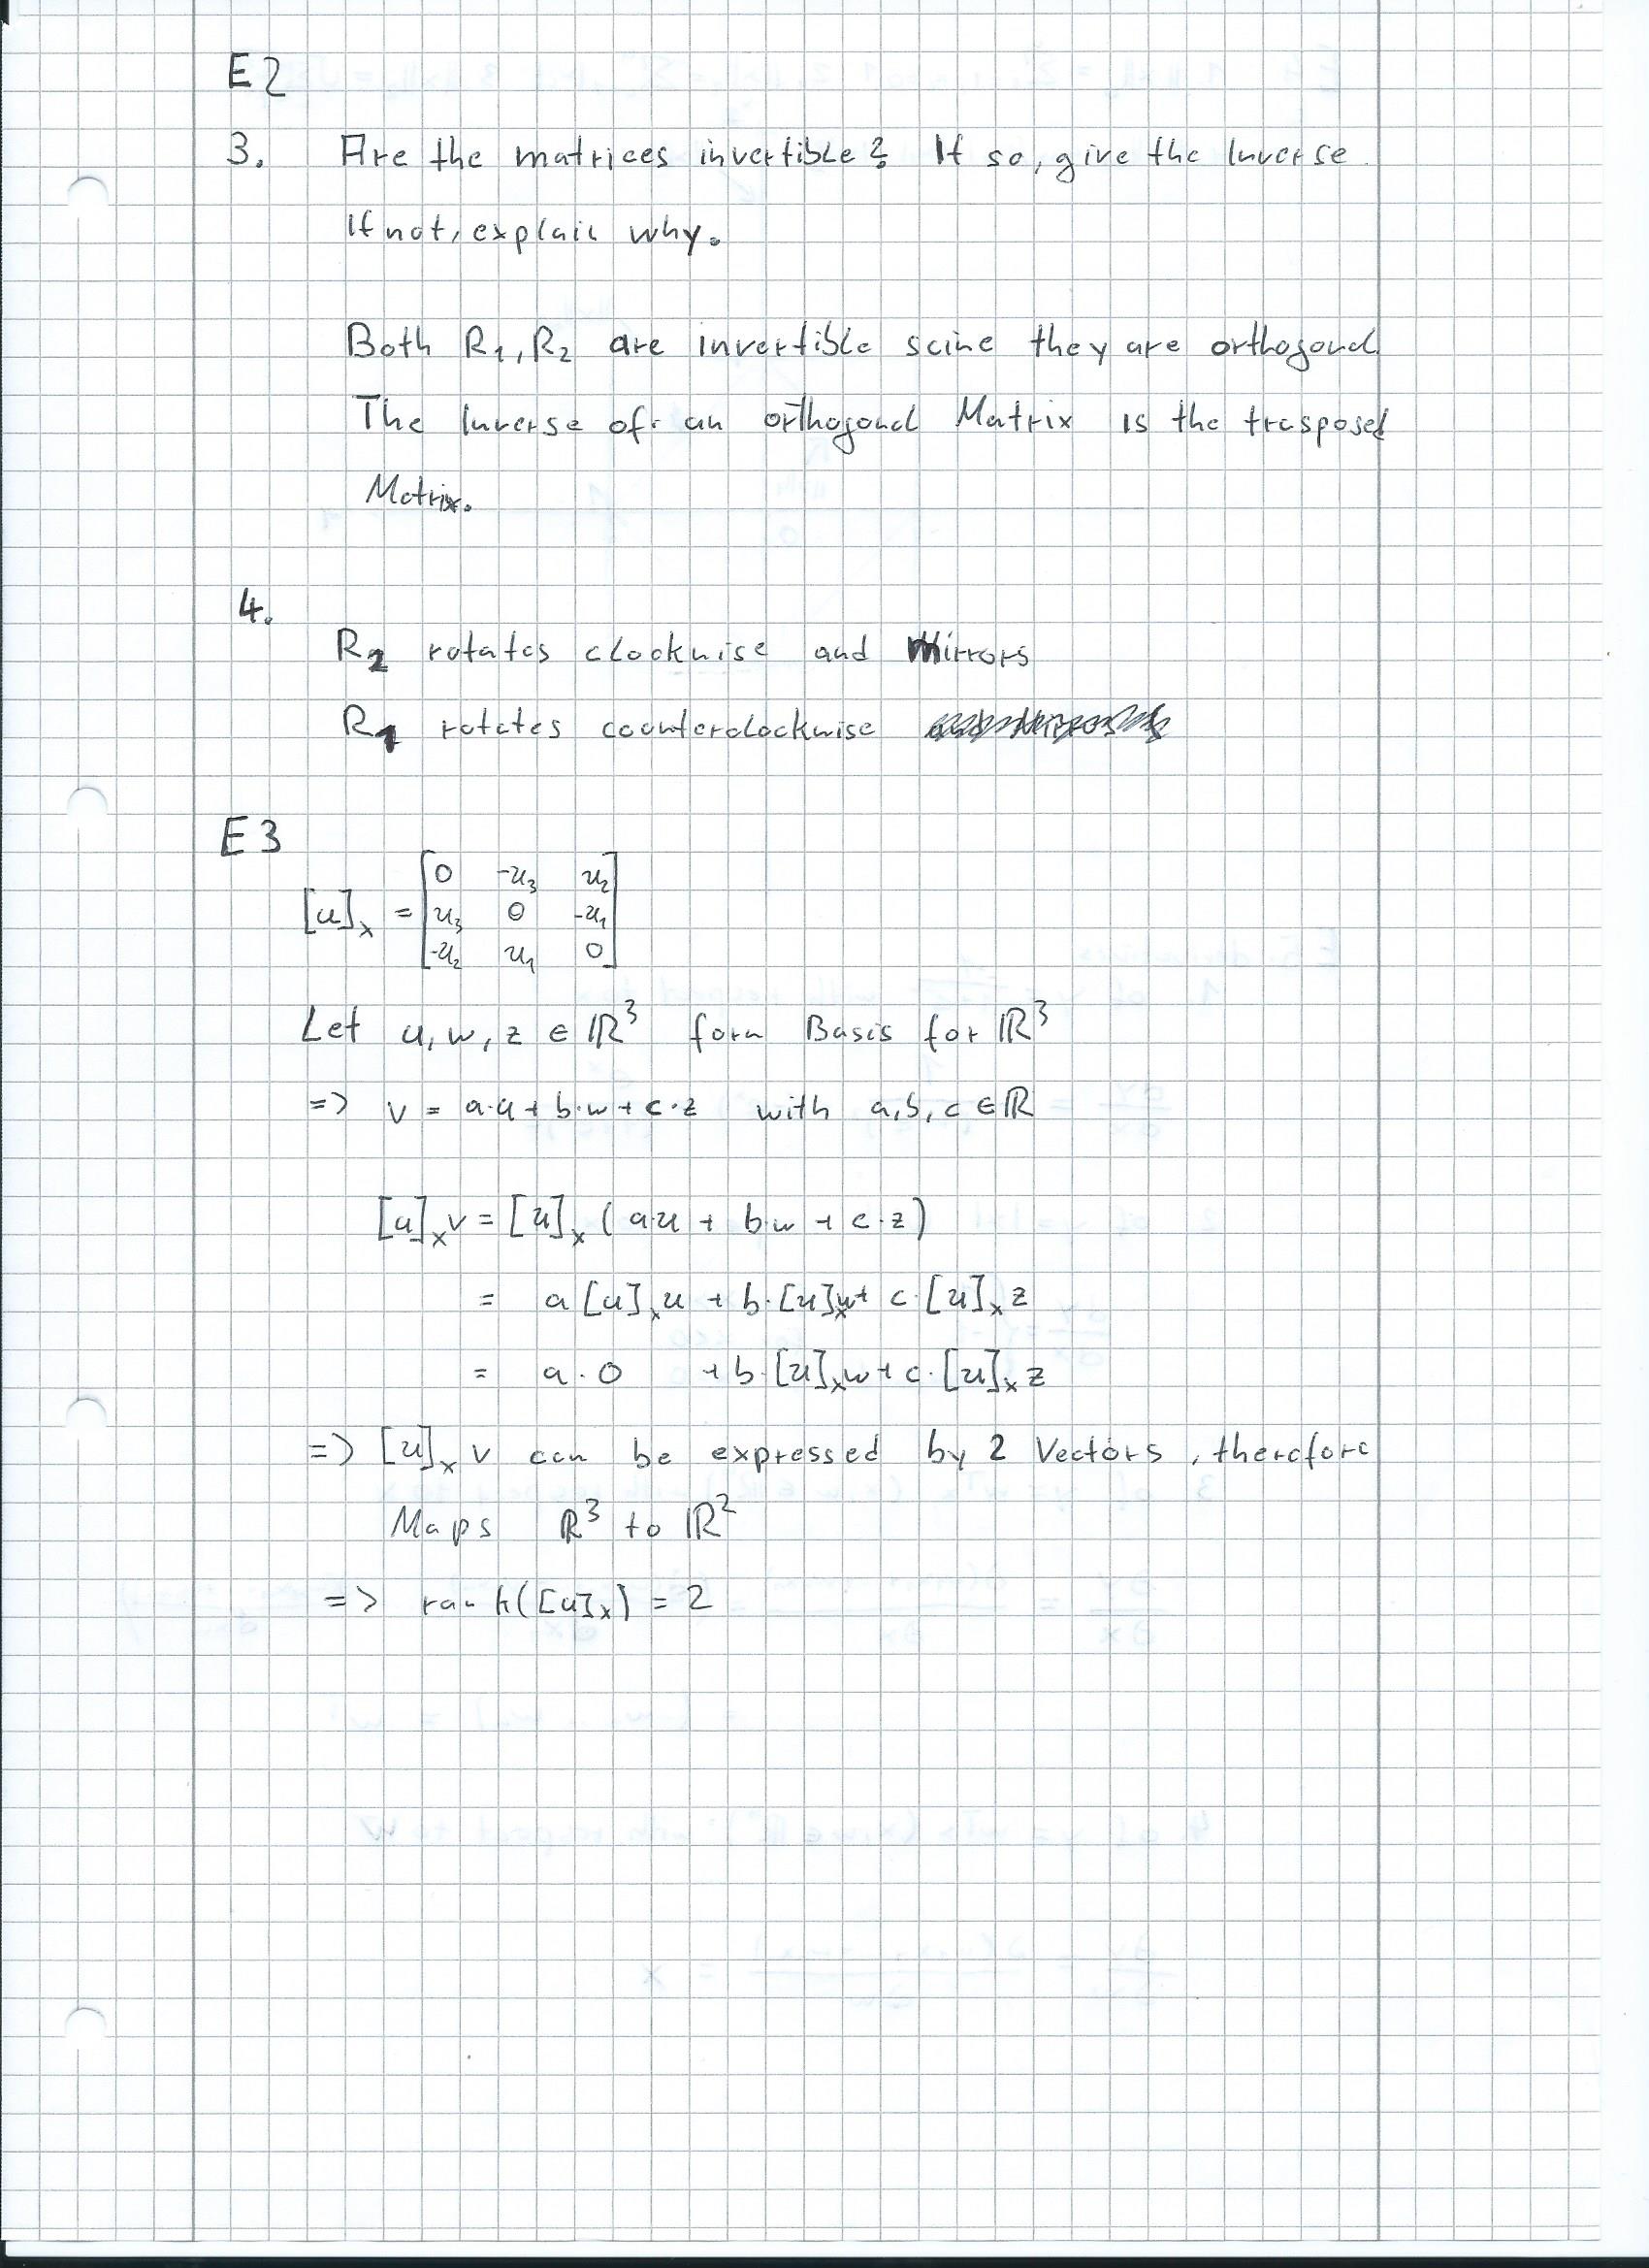 E2
3. Are the matrices invertible? If so, give the Inverse.
If not, explain why.
Both R₁, R₂ are invertible scine they are orthogonal.
The Inverse of an orthogonal Matrix is the trasposed
Matrix.
4.
R₂ rotates clockwise and Mirrors
R₁ rotates counterclockwise
E3
[u]ₓ = [0 -u₃ u₂
u₃ 0 -u₁
-u₂ u₁ 0]
Let u, w, z ∈ ℝ³ form Basis for ℝ³
=> v = a·u + b·w + c·z with a, b, c ∈ ℝ
[u]ₓ v = [u]ₓ (a·u + b·w + c·z)
= a [u]ₓ u + b·[u]ₓ w + c·[u]ₓ z
= a · 0 + b·[u]ₓ w + c·[u]ₓ z
=> [u]ₓ v can be expressed by 2 Vectors, therefore
Maps ℝ³ to ℝ²
=> rank([u]ₓ) = 2